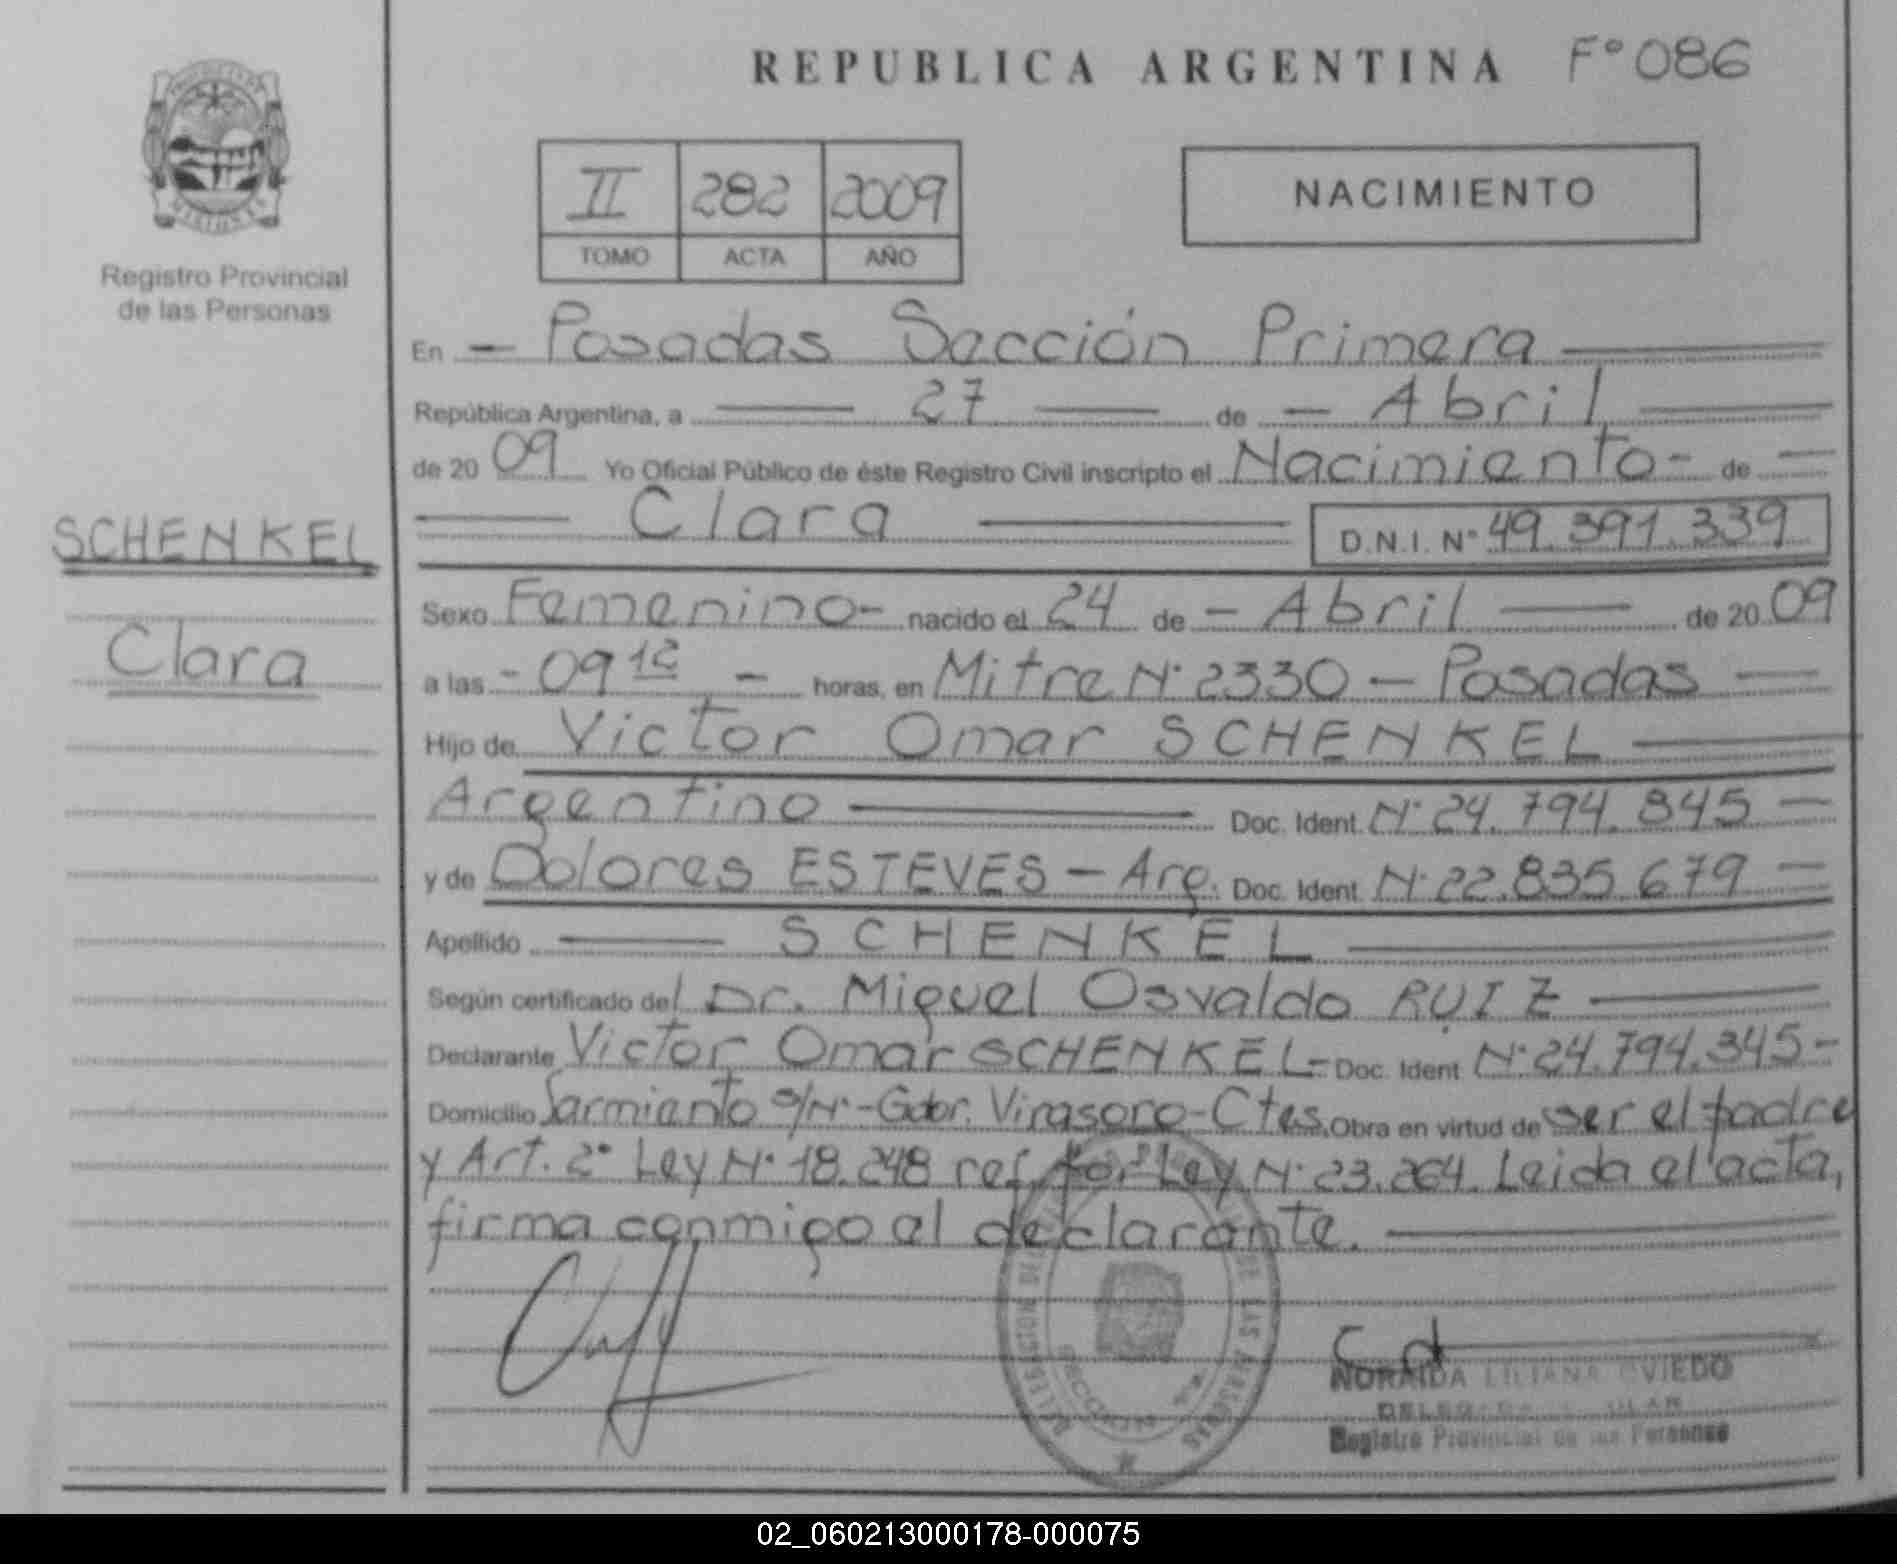 REPUBLICA ARGENTINA Fº 086
MISIONES
Registro Provincial
de las Personas
II 282 2009
TOMO ACTA AÑO
NACIMIENTO
En - Posadas Sección Primera
República Argentina, a 27 de - Abril
de 20 09 Yo Oficial Público de éste Registro Civil inscripto el Nacimiento - de
Clara D.N.I. Nº 49.391.339
SCHENKEL
Clara
Sexo Femenino - nacido el 24 de - Abril de 20 09
a las - 09 12 - horas, en Mitre Nº 2330 - Posadas
Hijo de Victor Omar SCHENKEL
Argentino Doc. Ident. Nº 24.794.345
y de Dolores ESTEVES - Arg. Doc. Ident. Nº 22.835.679
Apellido SCHENKEL
Según certificado del Dr. Miguel Osvaldo RUIZ
Declarante Victor Omar SCHENKEL - Doc. Ident Nº 24.794.345 -
Domicilio Sarmiento s/Nº - Gdor. Virasoro - Ctes. Obra en virtud de ser el padre
y Art. 2º Ley Nº 18.248 ref. por Ley Nº 23.264. Leida el acta,
firma conmigo el declarante.
DE LAS PERSONAS
NORAIDA LILIANA OVIEDO
Registro Provincial de las Personas
02_060213000178-000075